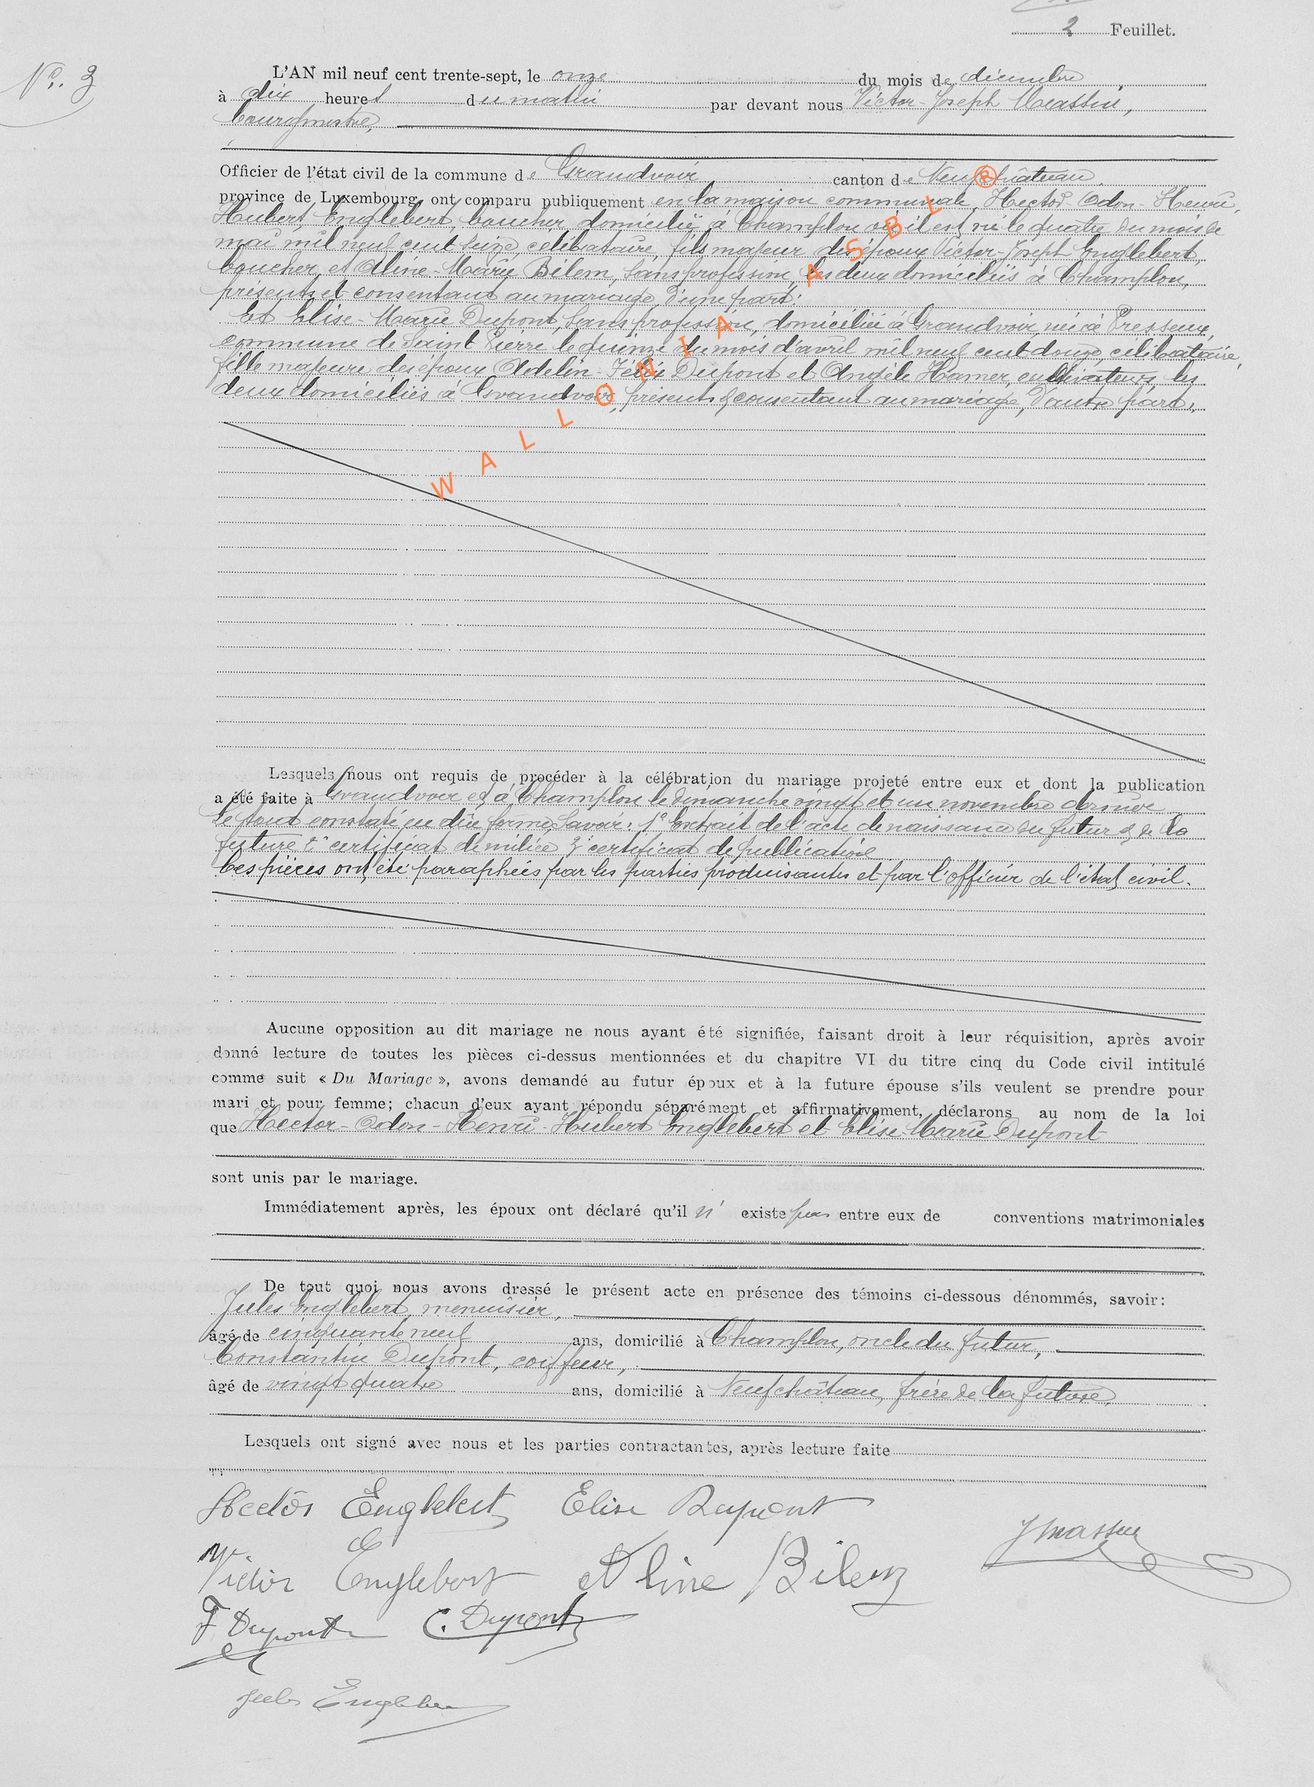 2 Feuillet.
N°. 3
L'AN mil neuf cent trente-sept, le onze du mois de décembre,
à dix heures du matin par devant nous Victor-Joseph Massin,
bourgmestre,
Officier de l'état civil de la commune de Grandvoir canton de Neufchâteau
province de Luxembourg, ont comparu publiquement en la maison communale, Hector-Odon-Henri
Hubert Englebert, boucher, domicilié à Champlon où il est né le quatre du mois de
mai mil neuf cent seize célibataire, fils majeur des époux Victor-Joseph Englebert
boucher, et Aline-Marie Bilem, sans profession, les deux domiciliés à Champlon,
présents et consentant au mariage, d'une part;
Et Elise-Marie Dupont, sans profession, domiciliée à Grandvoir née à Presseux,
commune de Saint Pierre le quinze du mois d'avril mil neuf cent douze célibataire,
fille majeure des époux Adelin-Félix Dupont et Angèle Hamer, cultivateurs, les
deux domiciliés à Grandvoir, présents & consentant au mariage, d'autre part.
WALLONIA ASBL ®
Lesquels nous ont requis de procéder à la célébration du mariage projeté entre eux et dont la publication
a été faite à Grandvoir et à Champlon le dimanche vingt et un novembre dernier
le tout constaté en due forme, savoir: 1° extrait de l'acte de naissance du futur & de la
future 2° certificat de milice 3° certificat de publication
Ces pièces ont été paraphées par les parties produisantes et par l'officier de l'état civil.
Aucune opposition au dit mariage ne nous ayant été signifiée, faisant droit à leur réquisition, après avoir
donné lecture de toutes les pièces ci-dessus mentionnées et du chapitre VI du titre cinq du Code civil intitulé
comme suit « Du Mariage », avons demandé au futur époux et à la future épouse s'ils veulent se prendre pour
mari et pour femme; chacun d'eux ayant répondu séparément et affirmativement, déclarons au nom de la loi
que Hector-Odon-Henri-Hubert Englebert et Elise-Marie Dupont
sont unis par le mariage.
Immédiatement après, les époux ont déclaré qu'il n' existe pas entre eux de conventions matrimoniales
De tout quoi nous avons dressé le présent acte en présence des témoins ci-dessous dénommés, savoir:
Jules Englebert, menuisier,
âgé de cinquante neuf ans, domicilié à Champlon, oncle du futur,
Constantin Dupont, coiffeur,
âgé de vingt quatre ans, domicilié à Neufchâteau, frère de la future.
Lesquels ont signé avec nous et les parties contractantes, après lecture faite
Hector Englebert Elise Dupont
Jmassin
Victor Englebert Aline Bilem
F Dupont C. Dupont
Jules Englebert